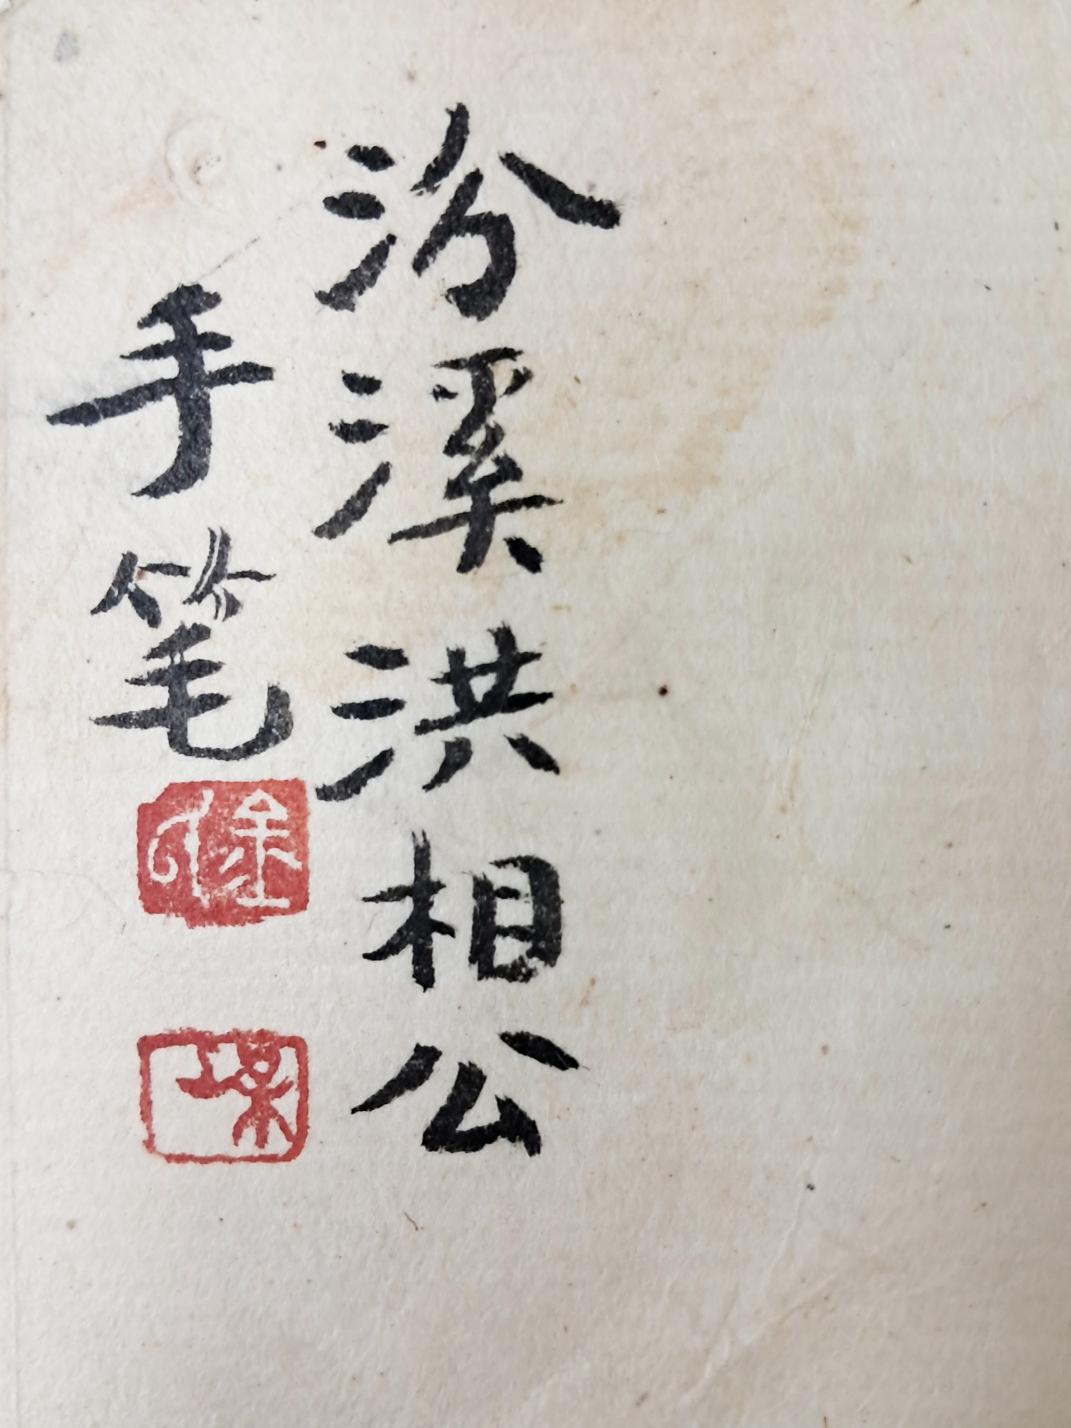 汾溪洪相公
手笔